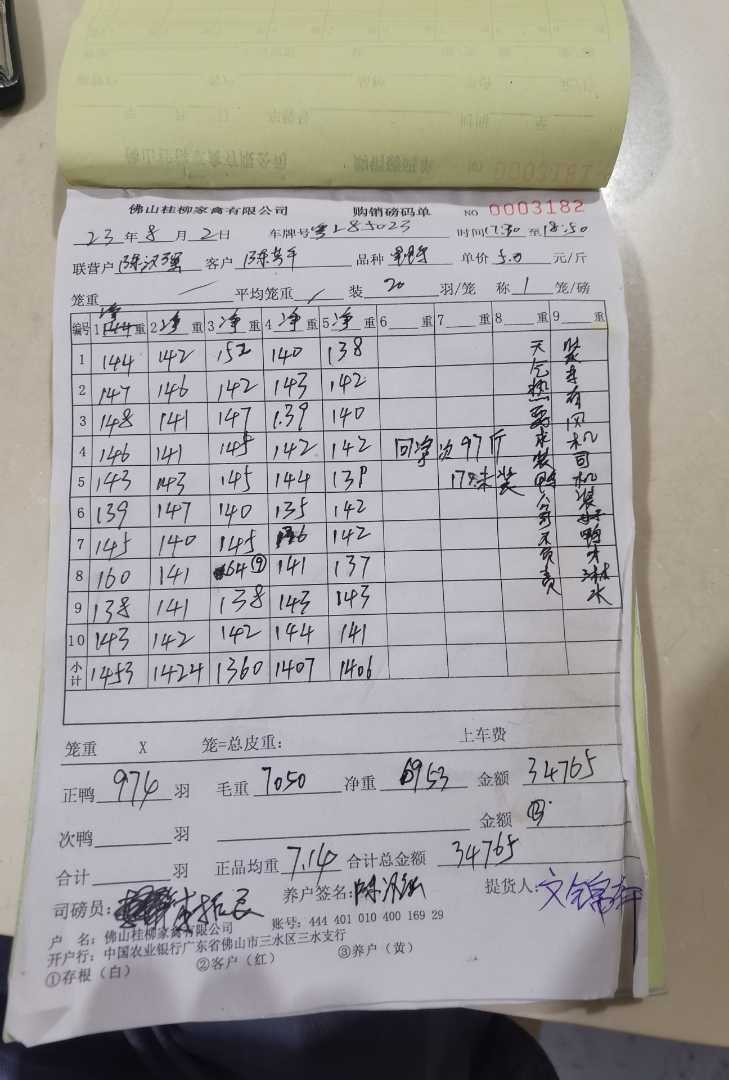 佛山桂柳家禽有限公司 购销磅码单 NO 0003182
23年8月2日 车牌号 时间17:30至18:50
联营户 陈汉强 客户 品种 单价 5.0 元/斤
笼重 平均笼重 装 20 羽/笼 称 1 笼/磅
编号 1 净 重 2 净 重 3 净 重 4 净 重 5 净 重 6 重 7 重 8 重 9 重
1 144 142 152 140 138
2 147 146 142 143 142
3 148 141 147 139 140
4 146 141 145 142 142 回净次97斤
5 143 143 145 144 139 17只未装
6 139 147 140 135 142
7 145 140 145 136 142
8 160 141 64⑨ 141 137
9 138 141 138 143 143
10 143 142 142 144 141
小计 1453 1424 1360 1407 1406
天气热要求装鸭公司不负责
装车有风机司机装好鸭才淋水
笼重 X 笼=总皮重: 上车费
正鸭 974 羽 毛重 7050 净重 6953 金额 34765
次鸭 羽 金额
合计 羽 正品均重 7.14 合计总金额 34765
司磅员: 养户签名: 提货人:
户 名: 佛山桂柳家禽有限公司 账号: 444 401 010 400 169 29
开户行: 中国农业银行广东省佛山市三水区三水支行
①存根(白) ②客户(红) ③养户(黄)